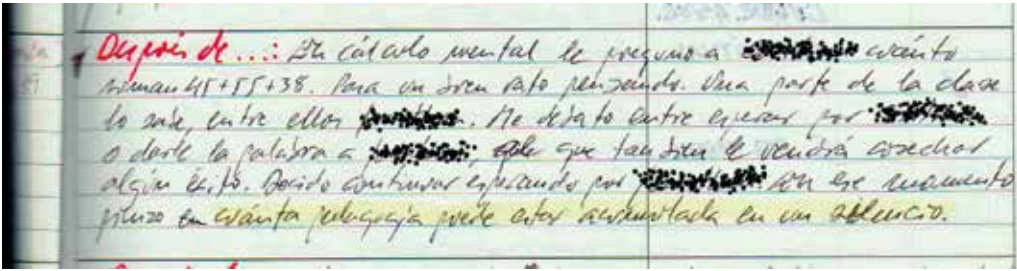 Después de...: En cálculo mental le pregunto a cuánto
suman 45+55+38. Pasa un buen rato pensando. Una parte de la clase
lo sabe, entre ellos . Me debato entre esperar por
o darle la palabra a , que también le vendría cosechar
algún éxito. Decido continuar esperando por En ese momento
pienso en cuánta pedagogía puede estar acumulada en un silencio.